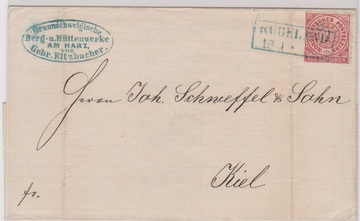 Braunschweigische
Berg- u. Hüttenwerke
AM HARZ,
von
Gebr. Eltzbacher.
RÜBELAND
Herrn Joh. Schweffel & Sohn
Kiel
fr.